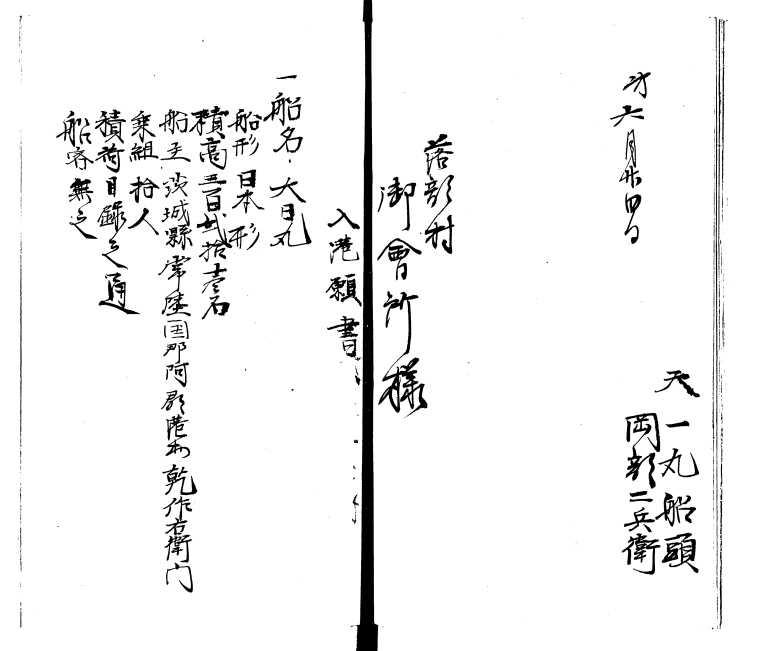 六月廿四日
天一丸船頭
岡部二兵衛
落部村
御會所様
入港願書
一船名 大日丸
船形 日本形
積高三百弐拾壱石
船主 茨城縣常陸国那阿郡港村 乾作右衛门
乗組 拾人
積荷目録之通
船客無之